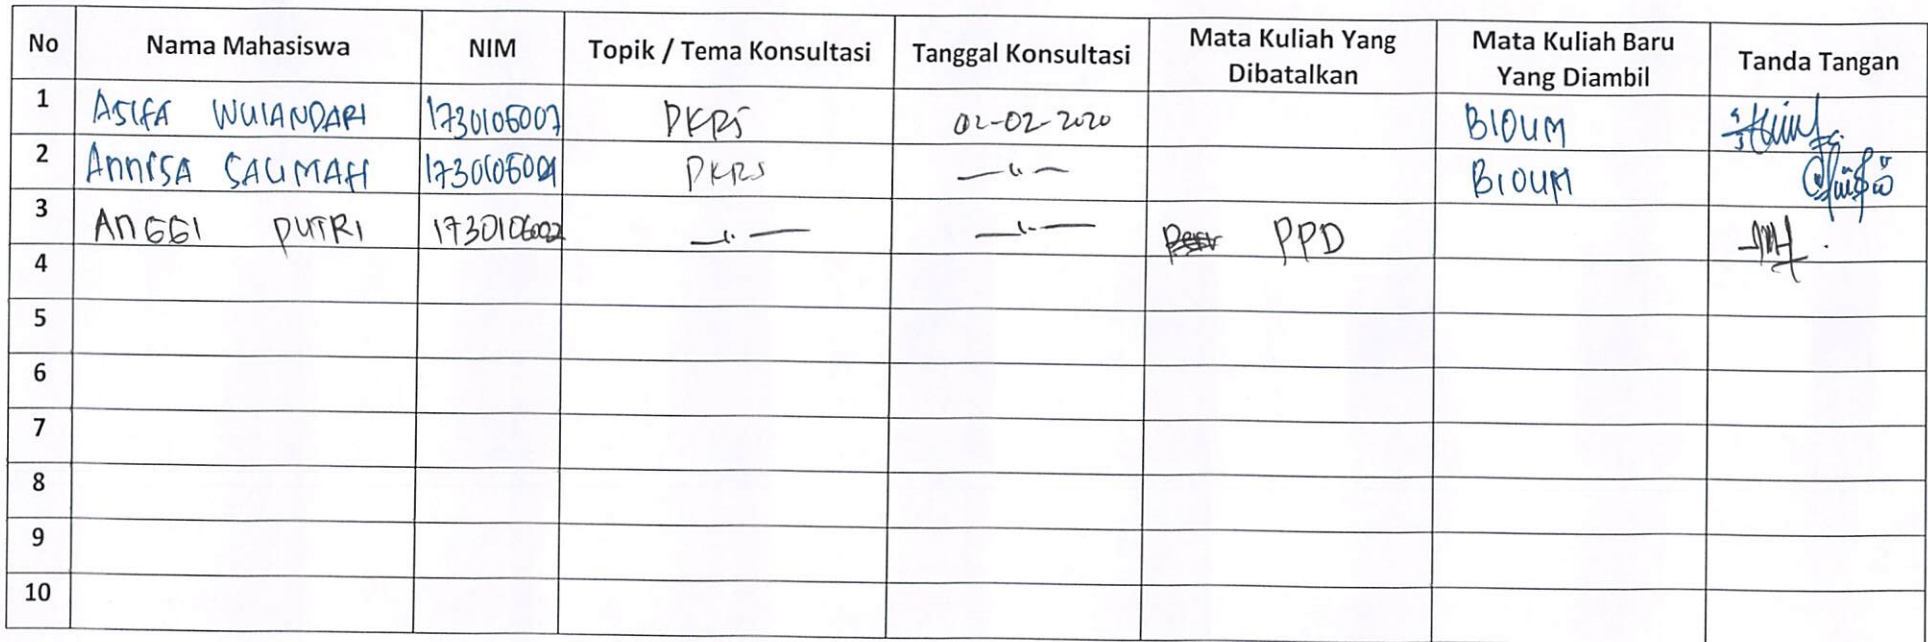 No Nama Mahasiswa NIM Topik / Tema Konsultasi Tanggal Konsultasi Mata Kuliah Yang Dibatalkan Mata Kuliah Baru Yang Diambil Tanda Tangan
1 ASIFA WULANDARI 1730106007 PKRS 02-02-2020 BIOUM
2 AnnISA SALIMAH PKRS —〃— BIOUM
3 AnGGI PUTRI 1730106002 —〃— —〃— PPD
4
5
6
7
8
9
10